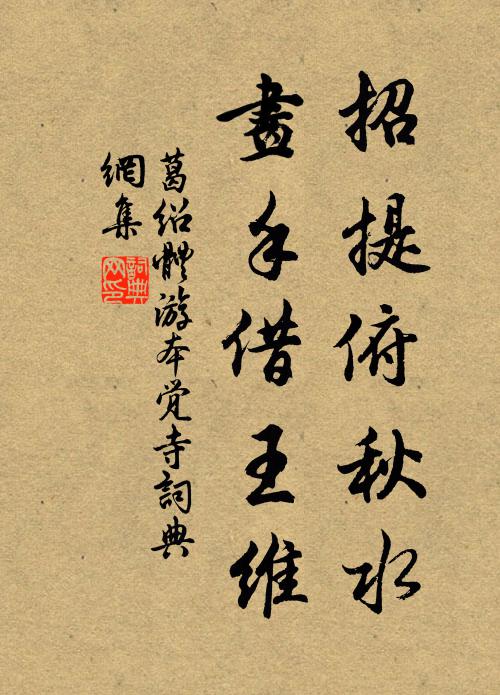 招提俯秋水
畫手借王維
葛紹體游本覺寺詞典
網集
詞典網印